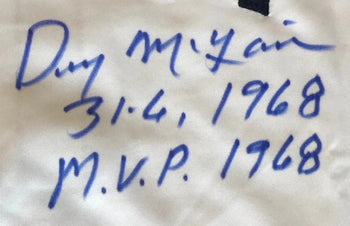 Denny McLain
31-6, 1968
M.V.P. 1968